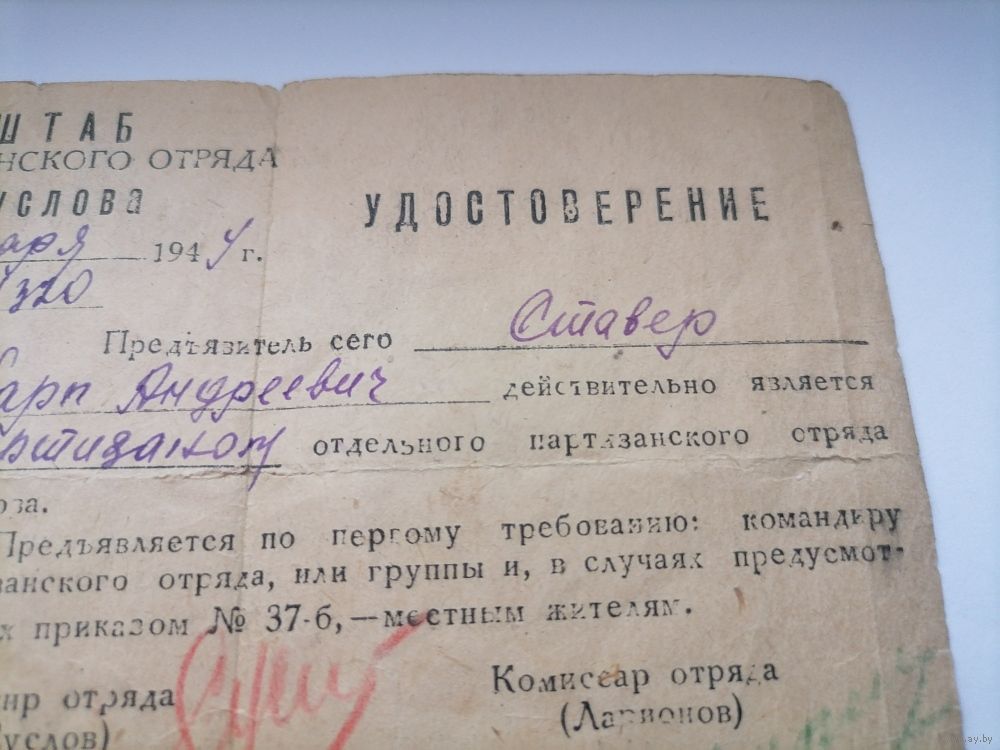 ШТАБ
НСКОГО ОТРЯДА
УСЛОВА
аря 1944 г.
1320
УДОСТОВЕРЕНИЕ
Предъявитель сего Ставер
Карп Андреевич действительно является
ртизаном отдельного партизанского отряда
ова.
Предъявляется по первому требованию: командиру
занского отряда, или группы и, в случаях предусмот-
х приказом № 37-б,—местным жителям.
ир отряда
услов)
Комиссар отряда
(Ларионов)
www.ay.by